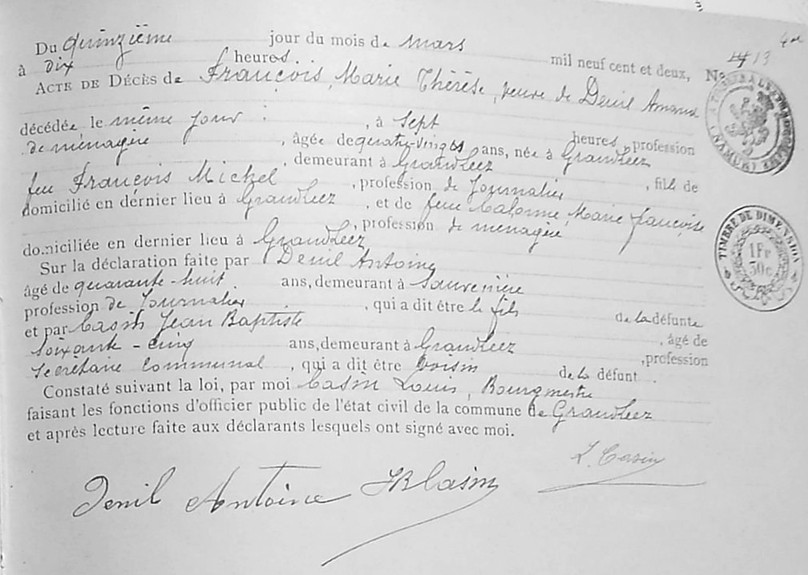 Du quinzième jour du mois de mars mil neuf cent et deux, N° 13
à dix heures
ACTE DE DÉCÈS de François, Marie Thérèse, veuve de Denil Amand
décédée le même jour, à sept heures, profession
de ménagère, âgée de quatre-vingts ans, née à Grandleez
, demeurant à Grandleez, fill de
feu François Michel, profession de Journalier
domicilié en dernier lieu à Grandleez, et de feue Calonne, Marie Françoise
, profession de ménagère
domiciliée en dernier lieu à Grandleez
Sur la déclaration faite par Denil Antoine
âgé de quarante-huit ans, demeurant à Sauvenière
profession de Journalier, qui a dit être le fils de la défunte
et par Casin Jean Baptiste, âgé de
soixante-cinq ans, demeurant à Grandleez, profession
Secrétaire Communal, qui a dit être voisin de la défunt.
Constaté suivant la loi, par moi Casin Louis, Bourgmestre
faisant les fonctions d'officier public de l'état civil de la commune de Grandleez
et après lecture faite aux déclarants lesquels ont signé avec moi.
L. Casin
Denil Antoine JBCasin
TIMBRE DE DIMENSION
1 Fr
30c
(NAMUR)